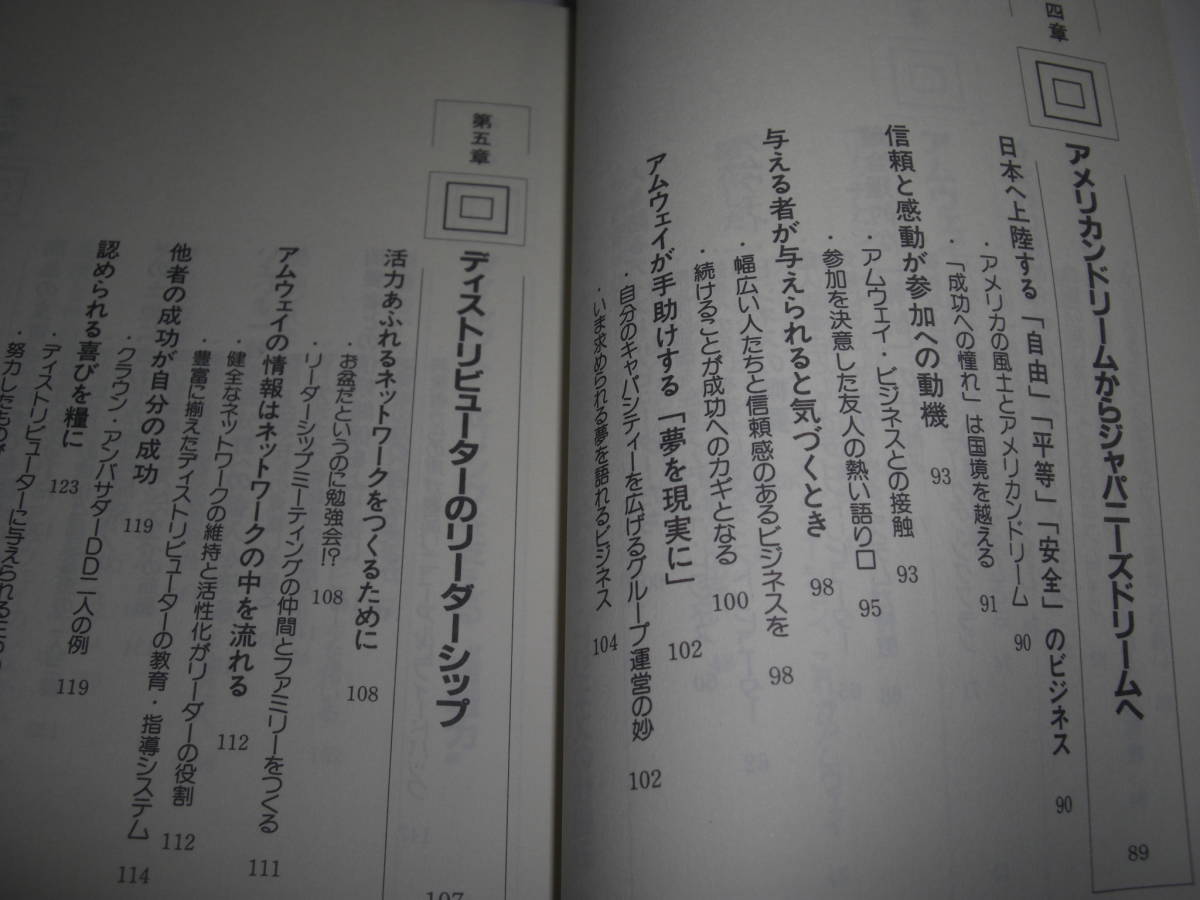 四章
アメリカンドリームからジャパニーズドリームへ 89
日本へ上陸する「自由」「平等」「安全」のビジネス 90
・アメリカの風土とアメリカンドリーム 90
・「成功への憧れ」は国境を越える 91
信頼と感動が参加への動機 93
・アムウェイ・ビジネスとの接触 93
・参加を決意した友人の熱い語り口 95
与える者が与えられると気づくとき 98
・幅広い人たちと信頼感のあるビジネスを 98
・続けることが成功へのカギとなる 100
アムウェイが手助けする「夢を現実に」 102
・自分のキャパシティーを広げるグループ運営の妙 102
・いま求められる夢を語れるビジネス 104
第五章
ディストリビューターのリーダーシップ 107
活力あふれるネットワークをつくるために 108
・お盆だというのに勉強会!? 108
・リーダーシップミーティングの仲間とファミリーをつくる 111
アムウェイの情報はネットワークの中を流れる 112
・健全なネットワークの維持と活性化がリーダーの役割 112
・豊富に揃えたディストリビューターの教育・指導システム 114
他者の成功が自分の成功 119
・クラウン・アンバサダーDD二人の例 119
認められる喜びを糧に 123
・ディストリビューターに与えられる
・努力したものが